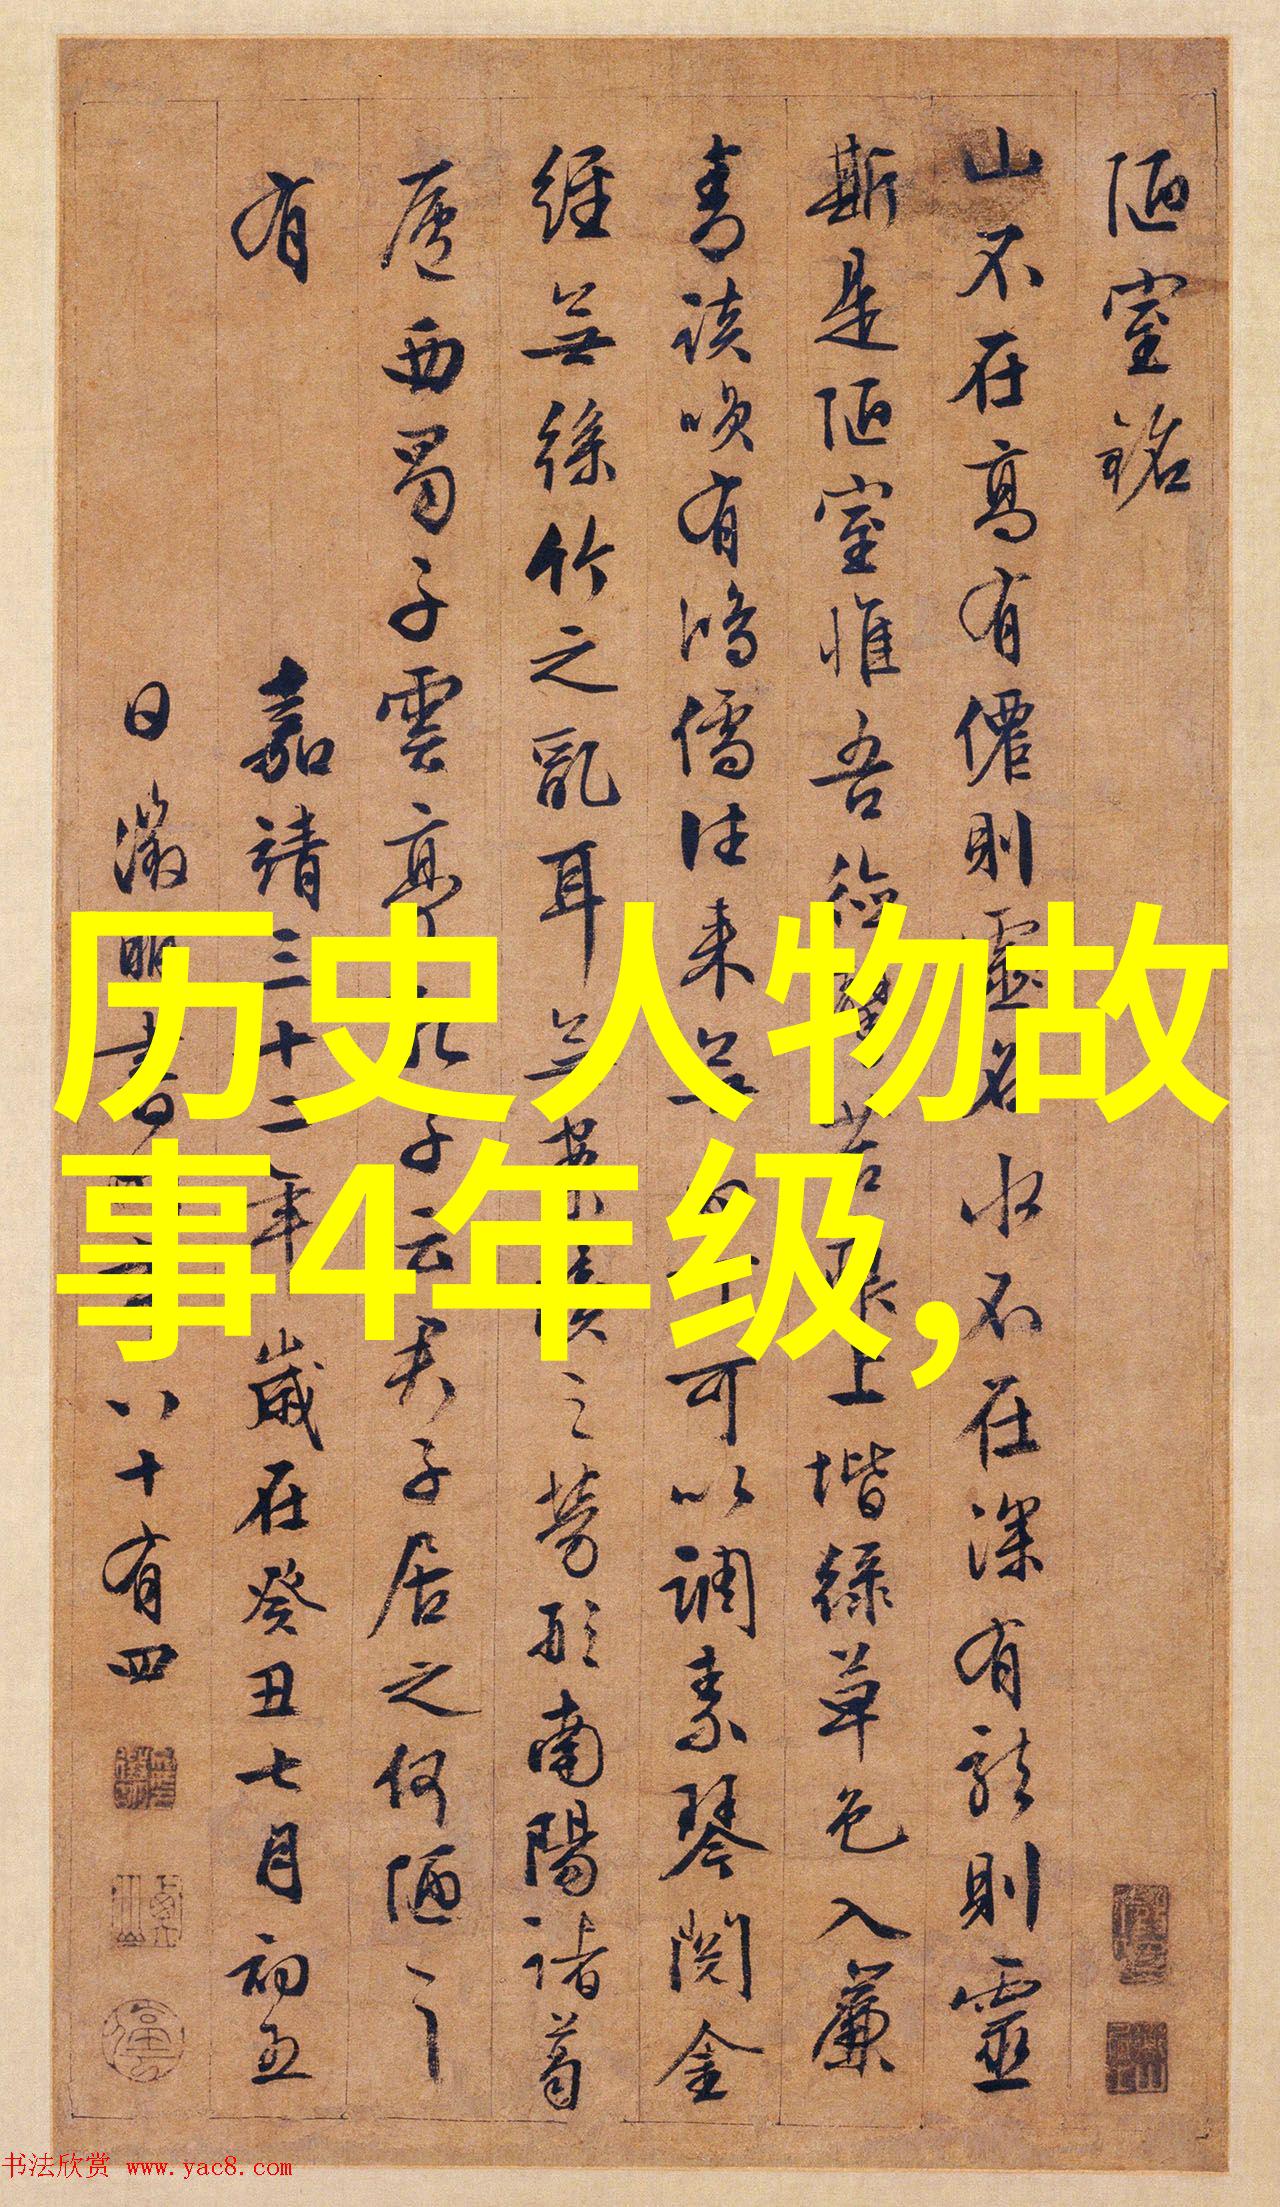 陋室銘
山不在高有僊則靈名水不在深有龍則靈
斯是陋室惟吾德馨苔痕上堦綠草色入簾
青談咲有鴻儒往来無白丁可以調素琴閱金
經無絲竹之亂耳無案牘之勞形南陽諸葛
廬西蜀子雲亭孔子云君子居之何陋之
有
嘉靖三十二年歲在癸丑七月初五
日徵明書時年八十有四
历史人物故
事4年级,
书法欣赏 www.yac8.com